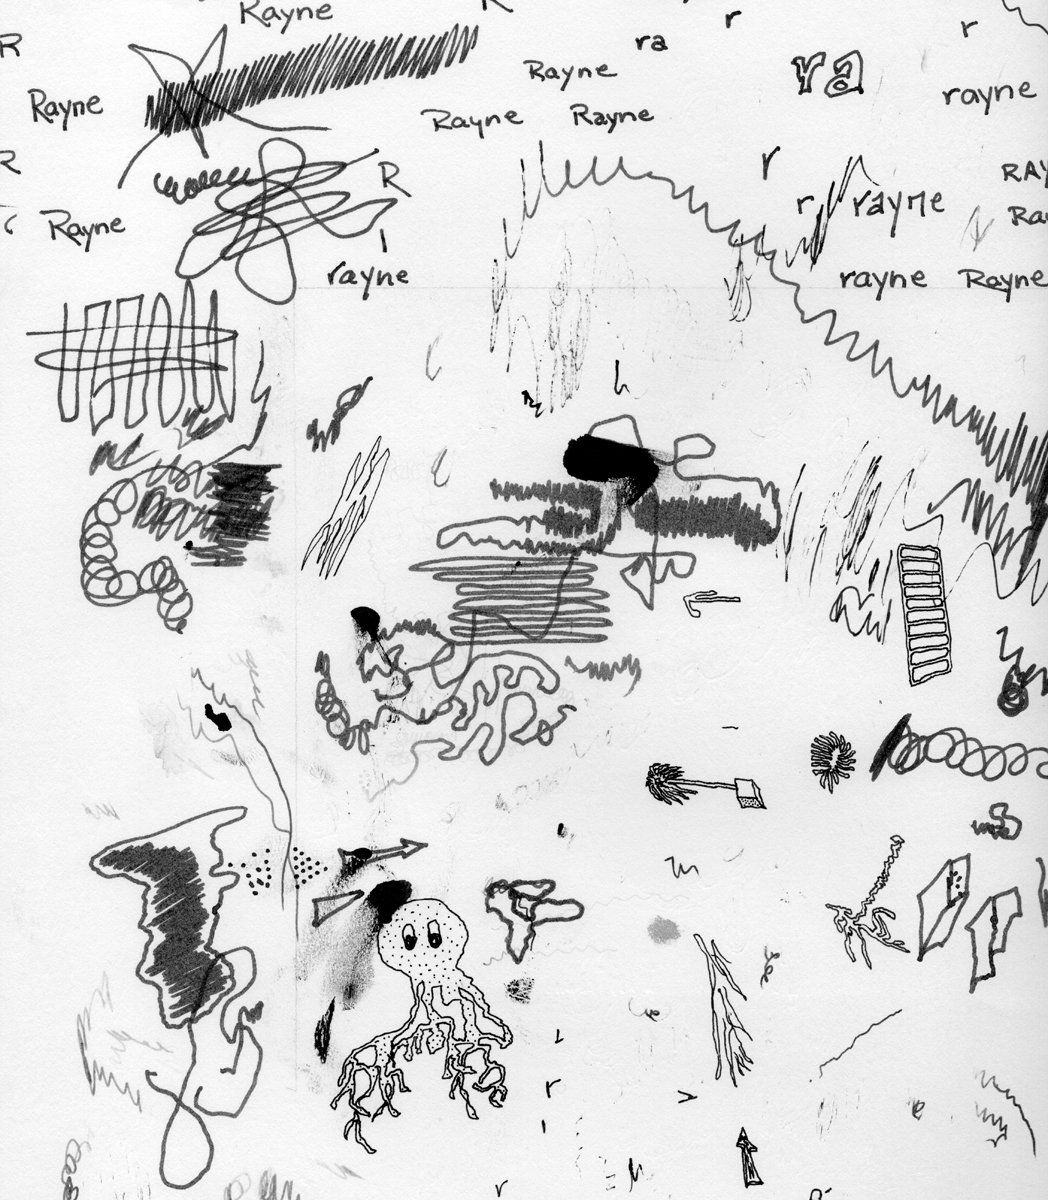 Rayne
R
R
r
r
ra
Rayne
ra
Rayne
rayne
Rayne
Rayne
R
r
R
RAY
r
rayne
Rayne
Ra
rayne
rayne
Rayne
S
r
r